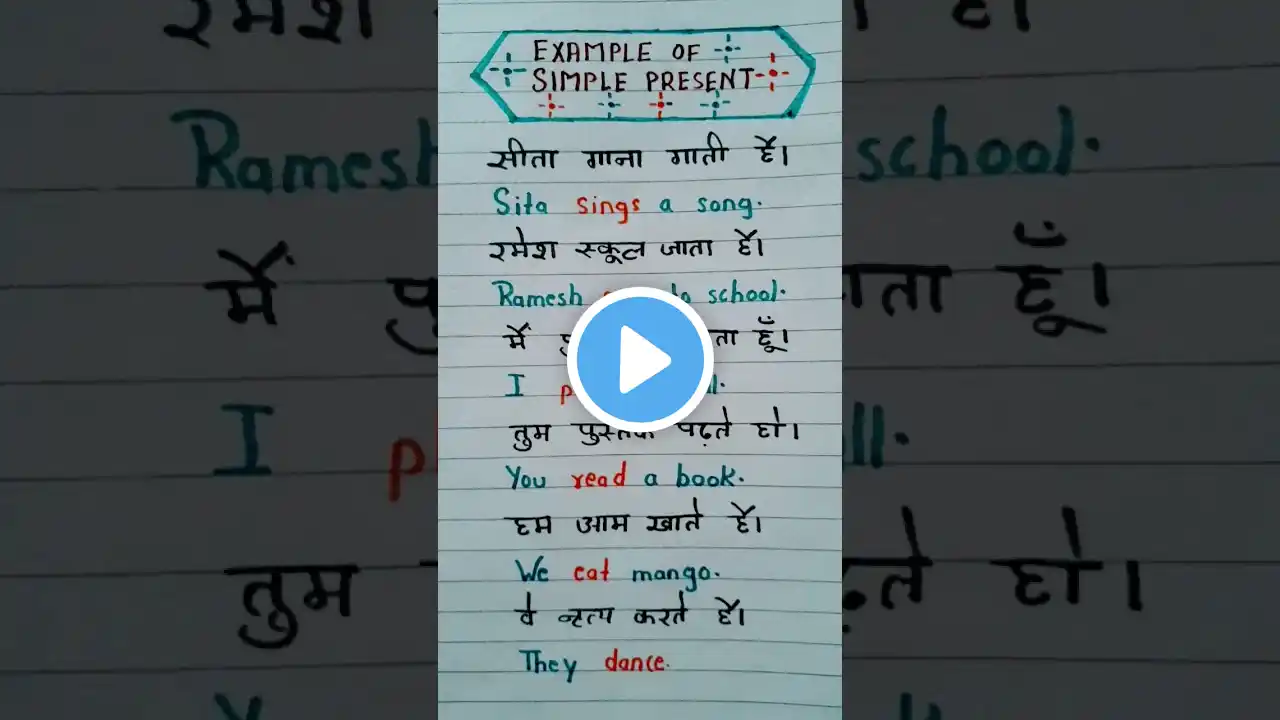 EXAMPLE OF
SIMPLE PRESENT
सीता गाना गाती है।
Sita sings a song.
रमेश स्कूल जाता है।
Ramesh to school.
मैं हूँ।
I
तुम पुस्तक पढ़ते हो।
You read a book.
हम आम खाते हैं।
We eat mango.
वे नृत्य करते हैं।
They dance.